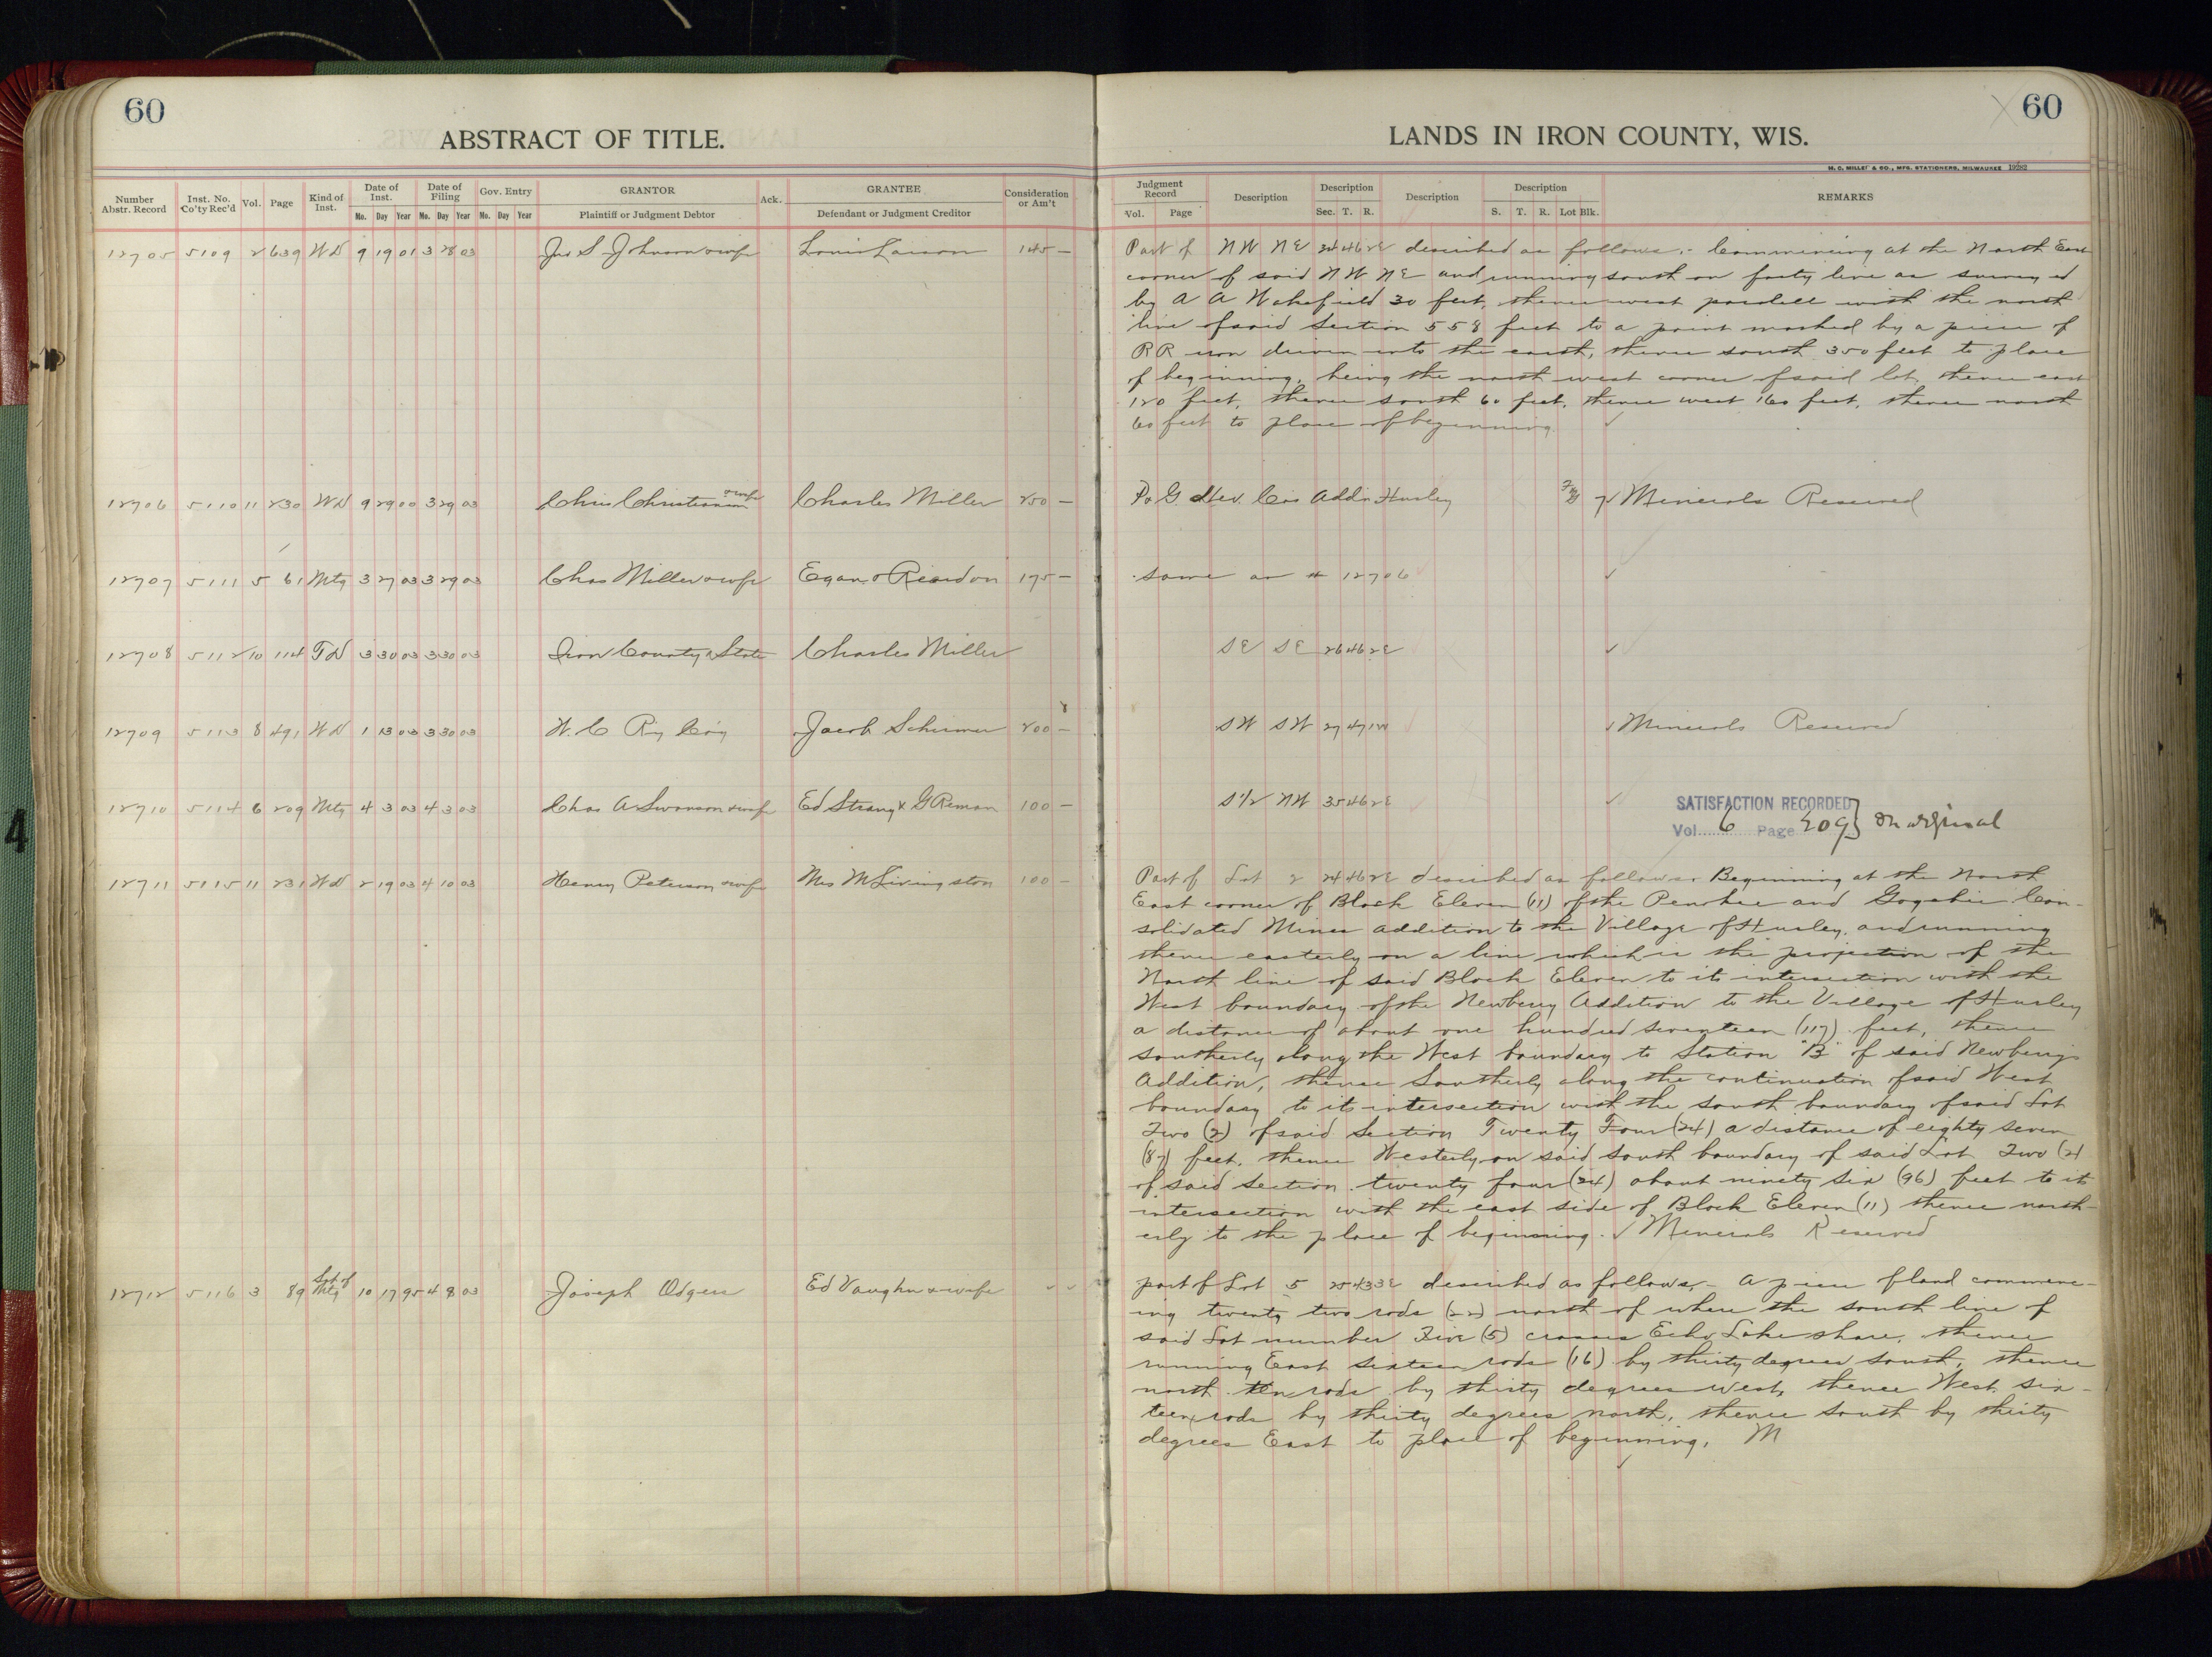 60
ABSTRACT OF TITLE.
Number Abstr. Record Inst. No. Co'ty Rec'd Vol. Page Kind of Inst. Date of Inst. Mo. Day Year Date of Filing Mo. Day Year Gov. Entry Mo. Day Year GRANTOR Plaintiff or Judgment Debtor Ack. GRANTEE Defendant or Judgment Creditor Consideration or Am't
12705 5109 2 639 WD 9 19 01 3 28 03 Jno S Johnson & wife Louis Larson 145 –
12706 5110 11 230 WD 9 29 00 3 29 03 Chris Christianson & wife Charles Miller 250 –
12707 5111 5 61 Mtg 3 27 03 3 29 03 Chas Miller & wife Egan & Reardon 175 –
12708 5112 10 114 TD 3 30 03 3 30 03 Iron County & State Charles Miller
12709 5113 8 491 WD 1 13 03 3 30 03 W. C Ry Co'y Jacob Schirmer 200 –
12710 5114 6 209 Mtg 4 3 03 4 3 03 Chas A Swanson & wife Ed Strang & G Reman 100 –
12711 5115 11 231 WD 2 19 03 4 10 03 Henry Peterson & wife Mrs M Livingston 100 –
12712 5116 3 89 Sat of Mtg 10 17 95 4 8 03 Joseph Odgers Ed Vaughn & wife
60
LANDS IN IRON COUNTY, WIS.
M. C. MILLET & CO., MFG. STATIONERS, MILWAUKEE 19282
Judgment Record Vol. Page Description Description Sec. T. R. Description Description S. T. R. Lot Blk. REMARKS
Part of NW NE 24 46 2E described as follows:- Commencing at the North East
corner of said NW NE and running south on forty line as surveyed
by A A Wakefield 30 feet, thence west parallell with the north
line of said Section 558 feet to a point marked by a piece of
RR iron driven into the earth, thence south 350 feet to place
of beginning, being the north west corner of said lot, thence east
120 feet, thence south 60 feet, thence west 160 feet, thence north
60 feet to place of beginning.
P & G. Add'n Hurley 7 Minerals Reserved
same as # 12706
SE SE 26 46 2E
SW SW 27 47 1W Minerals Reserved
S 1/2 NW 35 46 2E
SATISFACTION RECORDED
Vol. 6 Page 209 } on original
Part of Lot 2 24 46 2E described as follows. Beginning at the North
East corner of Block Eleven (11) of the Penokee and Gogebic Con-
solidated Mines addition to the Village of Hurley, and running
thence easterly on a line which is the projection of the
North line of said Block Eleven to its intersection with the
West boundary of the Newberry Addition to the Village of Hurley
a distance of about one hundred seventeen (117) feet, thence
southerly along the West boundary to Station "B" of said Newberrys
Addition, thence Southerly along the continuation of said West
boundary to its intersection with the south boundary of said Lot
Two (2) of said Section Twenty Four (24) a distance of eighty seven
(87) feet, thence Westerly on said south boundary of said Lot Two (2)
of said section twenty four (24) about ninety six (96) feet to its
intersection with the east side of Block Eleven (11) thence north-
erly to the place of beginning. Minerals Reserved
part of Lot 5 25 43 3E described as follows,- A piece of land commenc-
ing twenty two rods (22) north of where the south line of
said Lot number Five (5) crosses Echo Lake shore, thence
running East sixteen rods (16) by thirty degrees south, thence
north ten rods by thirty degrees west, thence West six-
teen rods by thirty degrees north, thence south by thirty
degrees East to place of beginning, M